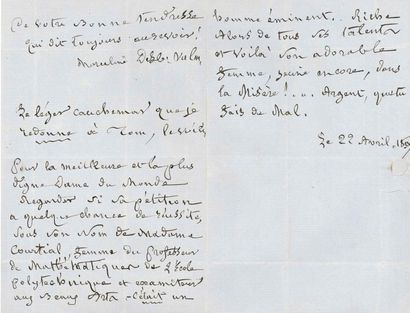 de votre bonne tendresse
qui dit toujours: au revoir!
Marceline Desb. Valm
Le léger cauchemar que je
redonne à Tom,
Pour la meilleure et la plus
digne Dame du Monde
Regarder si sa pétition
a quelque chance de réussite,
sous son nom de Madame
Courtial, femme du professeur
de Mathématiques de l'école
polytechnique et examinateur
aux Beaux Arts - C'était un
homme éminent.. Riche
alors de tous ses talents
et voilà son adorable
femme, jeune encore, dans
la Misère!... Argent, que tu
fais de Mal.
Le 22 Avril,